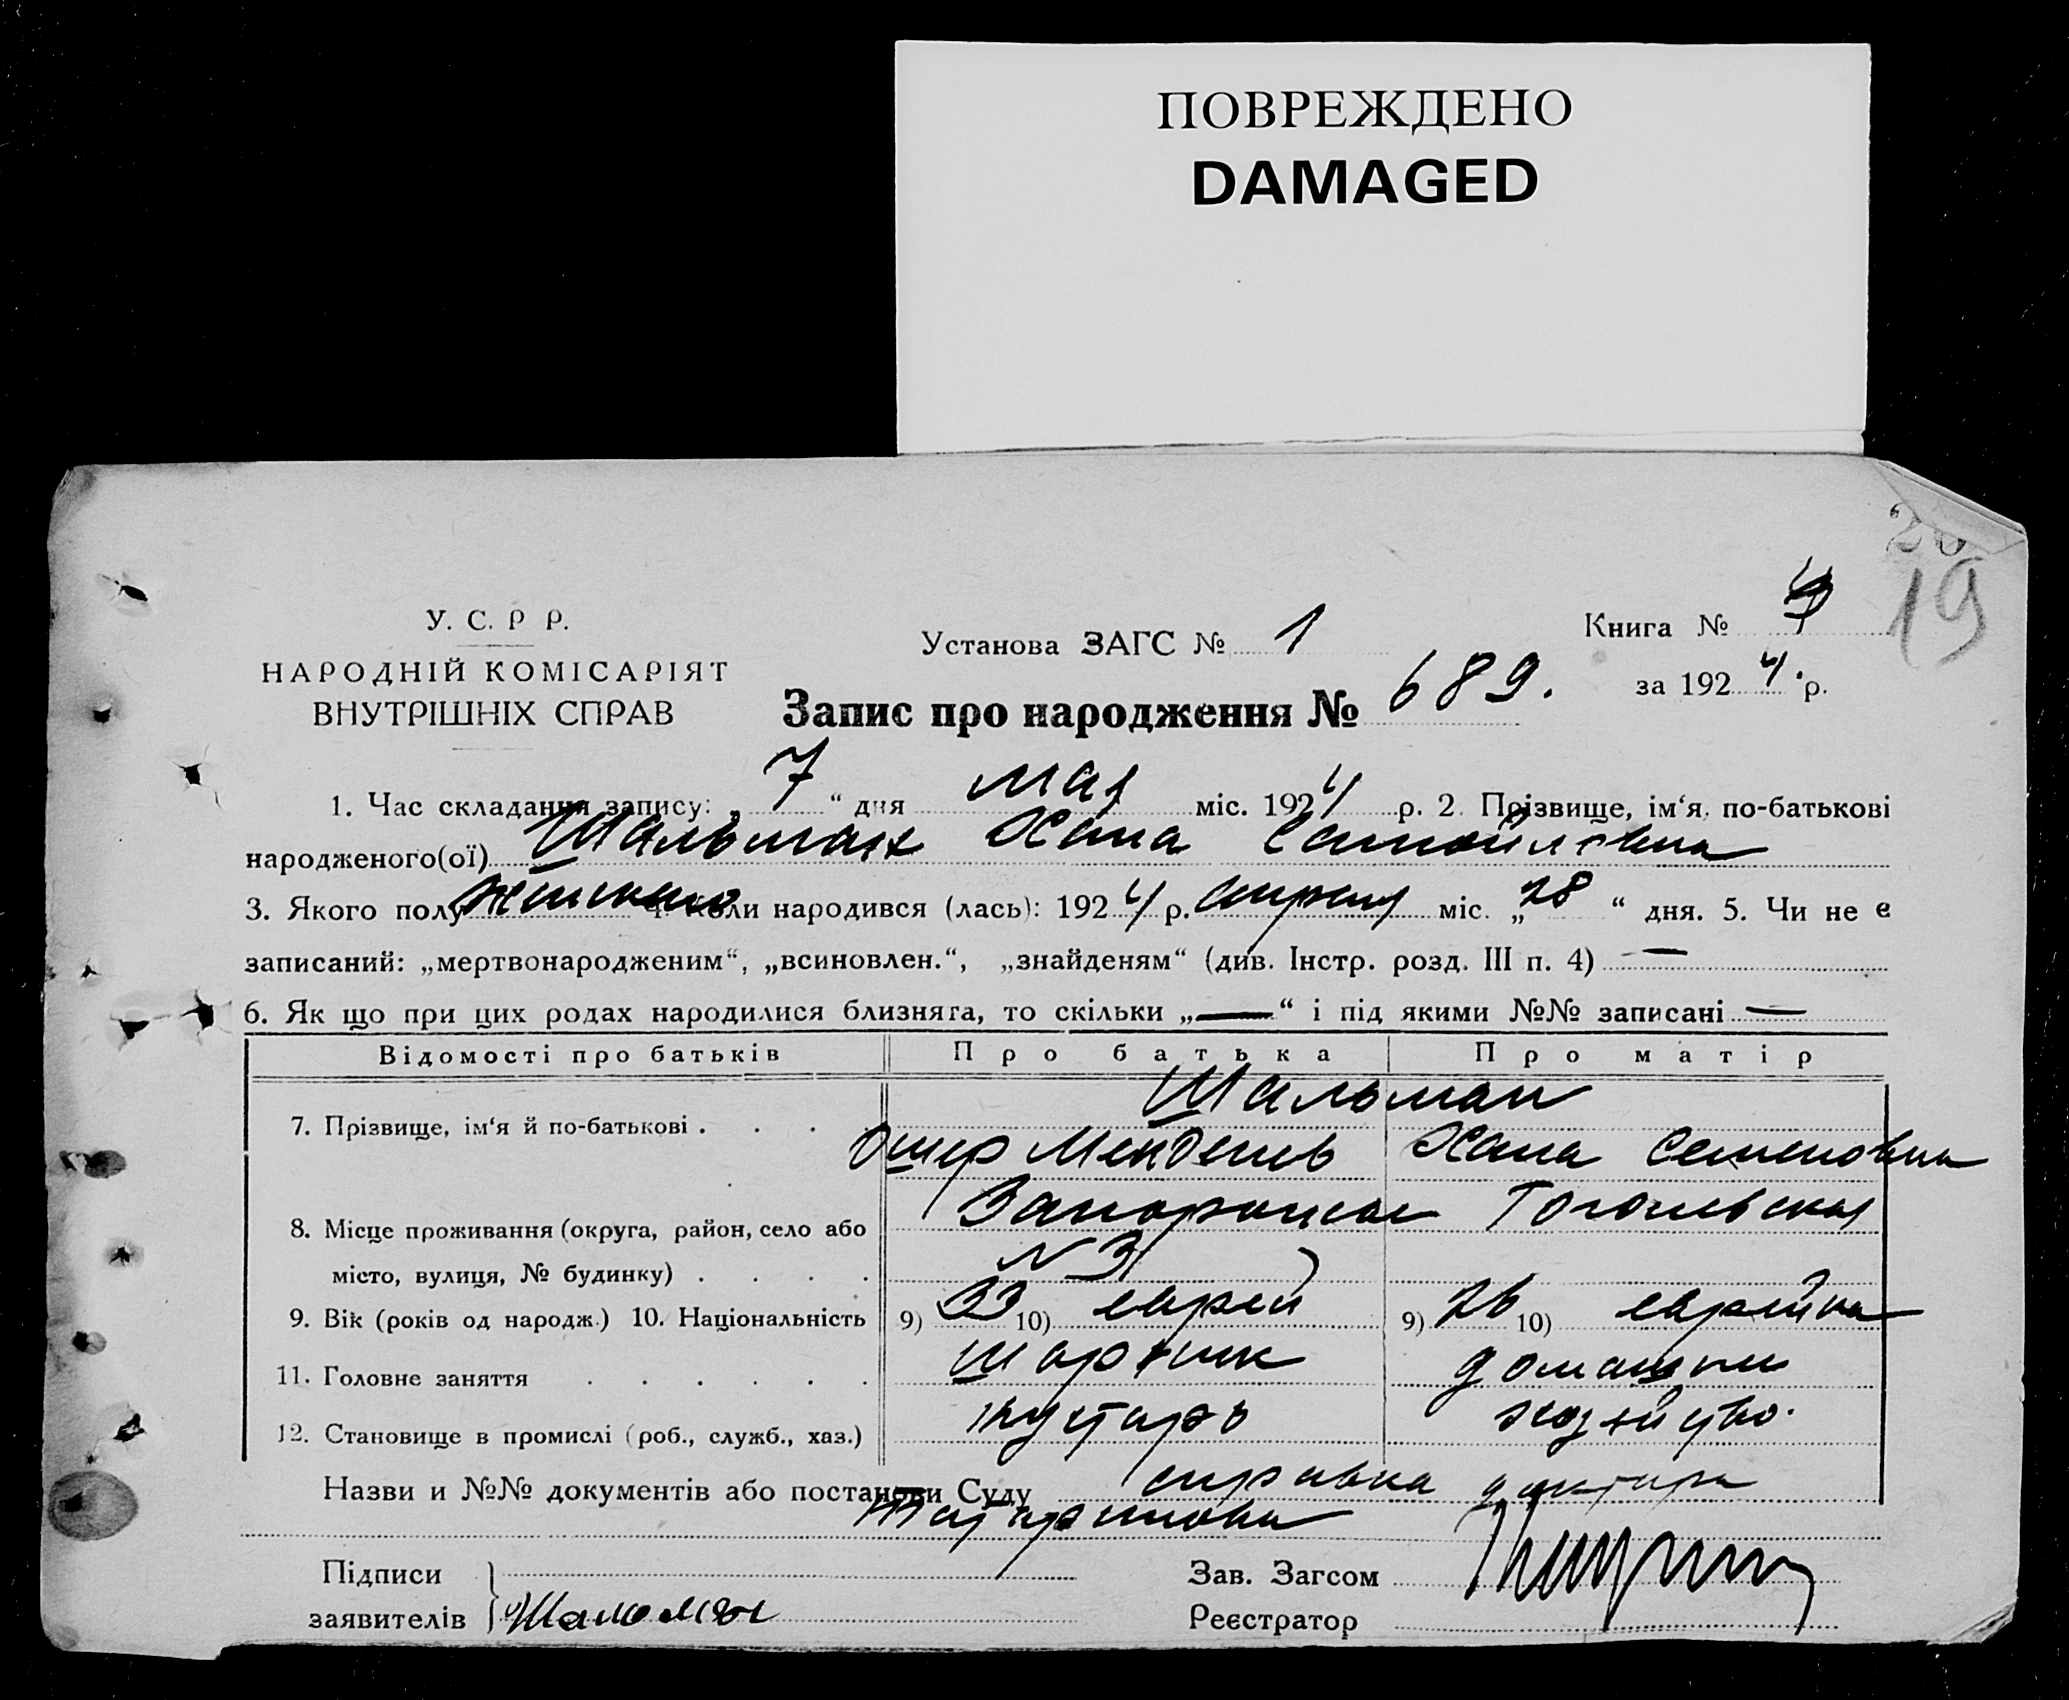 ПОВРЕЖДЕНО
DAMAGED
20
19
У. С. Р Р.
НАРОДНІЙ КОМІСАРІЯТ
ВНУТРІШНІХ СПРАВ
Установа ЗАГС № 1
Книга №
за 1924 р.
Запис про народження № 689.
1. Час складання запису: „ 7 “ дня мая міс. 1924 р. 2. Прізвище, ім‘я, по-батькові
народженого(ої) Шальман Хана Самойловна
3. Якого полу женского 4. Коли народився (лась): 1924 р. апреля міс. „ 28 “ дня. 5. Чи не є
записаний: „мертвонародженим“, „всиновлен.“, „знайденям“ (див. Інстр. розд. III п. 4) —
6. Як що при цих родах народилися близняга, то скільки „—“ і під якими №№ записані —
Відомості про батьків Про батька Про матір
7. Прізвище, ім‘я й по-батькові . . . . Шальман
Ошер Мендель Хана Семеновна
8. Місце проживання (округа, район, село або Запорожье Гогольская
місто, вулиця, № будинку) . . . . N 31
9. Вік (років од народж.) 10. Національність 9) 33 10) еврей 9) 26 10) еврейка
11. Головне заняття . . . . . . домашнее
12. Становище в промислі (роб., служб., хаз.) кустарь хозяйство.
Назви и №№ документів або постанови Суду справка доктора
Підписи
заявителів Шальман
Зав. Загсом
Реєстратор